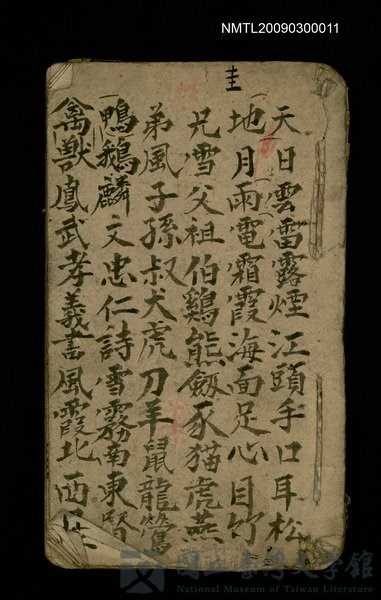 NMTL20090300011
圭
天日雲雷露煙江頭手口耳松
地月雨電霜霞海面足心目竹
兄雪父祖伯鷄熊劔豕猫虎燕
弟風子孫叔犬虎刀羊鼠龍鶯
鴨鵝麟文忠仁詩雪霧南東
禽獸鳳武孝義書風霞北西
國立臺灣文學館
National Museum of Taiwan Literature